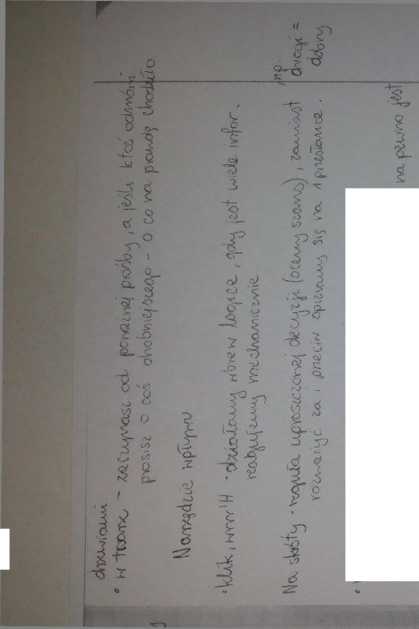 drzwiami
• w twarz - zaczynasz od poważnej prośby, a jeśli ktoś odmówi
prosisz o coś drobniejszego - o co na prawdę chodziło
Narzędzia wpływu
• klik, wrrr!H • działamy wbrew logice, gdy jest wiele infor.
reagujemy mechanicznie
Na skróty • reguła uproszczonej decyzji (oceny sców), zamiast
rozważyć za i przeciw opieramy się na 1 przesłance.
np
drogi =
dobry
na pewno jest